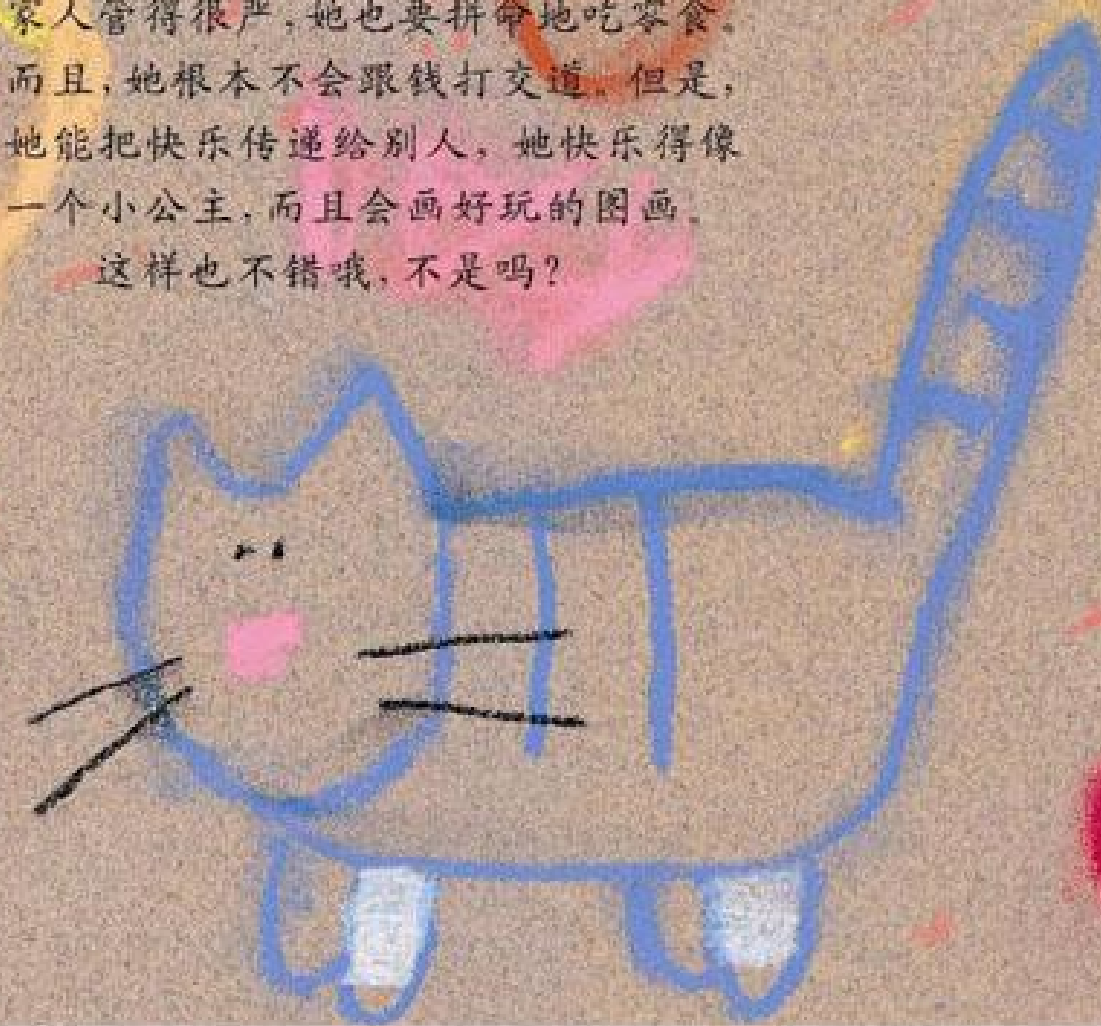 家人管得很严，她也要拼命地吃零食。
而且，她根本不会跟钱打交道。但是，
她能把快乐传递给别人，她快乐得像
一个小公主，而且会画好玩的图画。
这样也不错哦，不是吗？